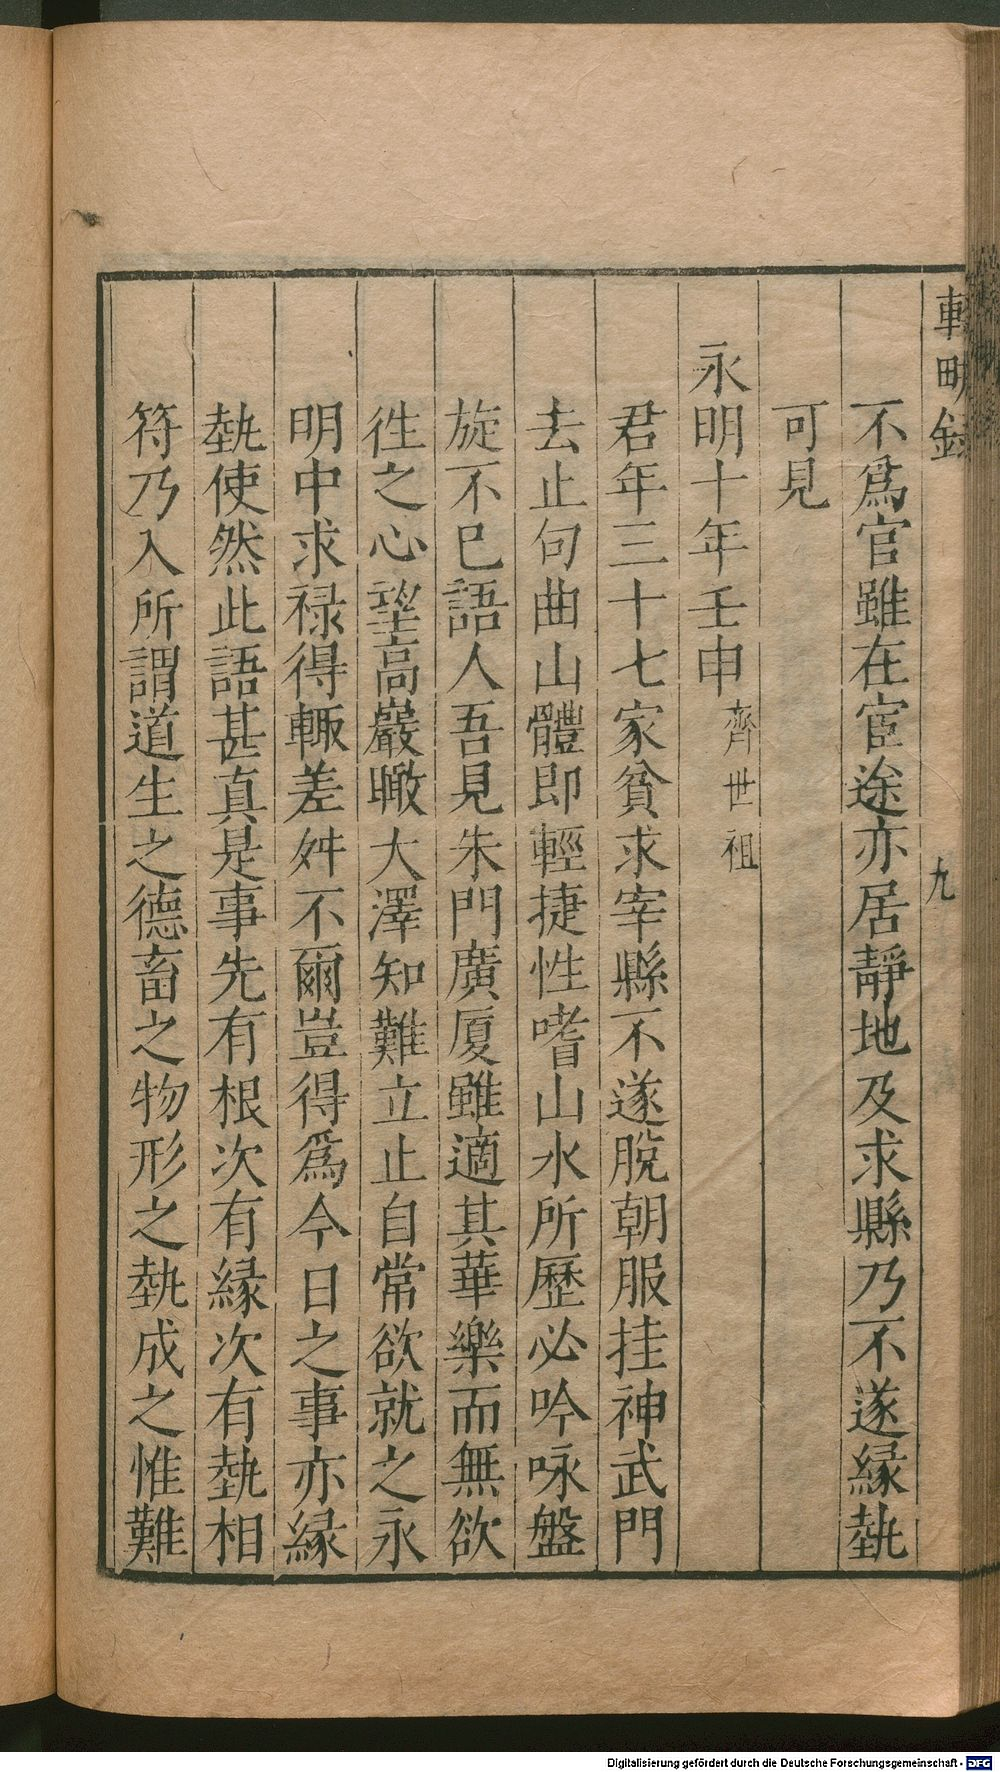 不爲官雖在宦途亦居靜地及求縣乃不遂緣埶
可見
永明十年壬申齊世祖
君年三十七家貧求宰縣不遂脫朝服挂神武門
去止句曲山體即輕捷性嗜山水所歷必吟咏盤
旋不巳語人吾見朱門廣厦雖適其華樂而無欲
徃之心望高巖瞰大澤知難立止自常欲就之永
明中求祿得輒差舛不爾豈得爲今日之事亦緣
埶使然此語甚真是事先有根次有緣次有埶相
符乃入所謂道生之德畜之物形之埶成之惟難
九
Digitalisierung gefördert durch die Deutsche Forschungsgemeinschaft - DFG